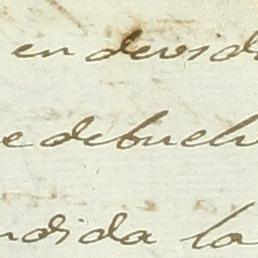 en deusd
e debuelv
ndida la